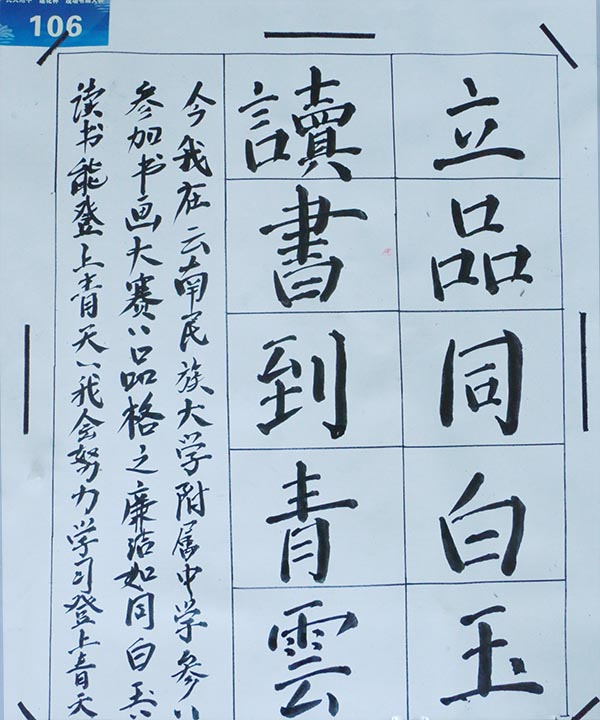 106
立品同白玉
讀書到青雲
今我在云南民族大学附属中学参
参加书画大赛品格之廉洁如同白玉
读书能登上青天我会努力学习登上青天